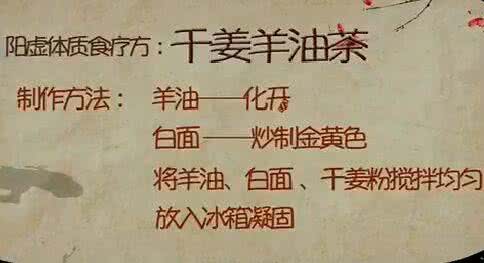 阳虚体质食疗方：干姜羊油茶
制作方法：羊油——化开
白面——炒制金黄色
将羊油、白面、干姜粉搅拌均匀
放入冰箱凝固